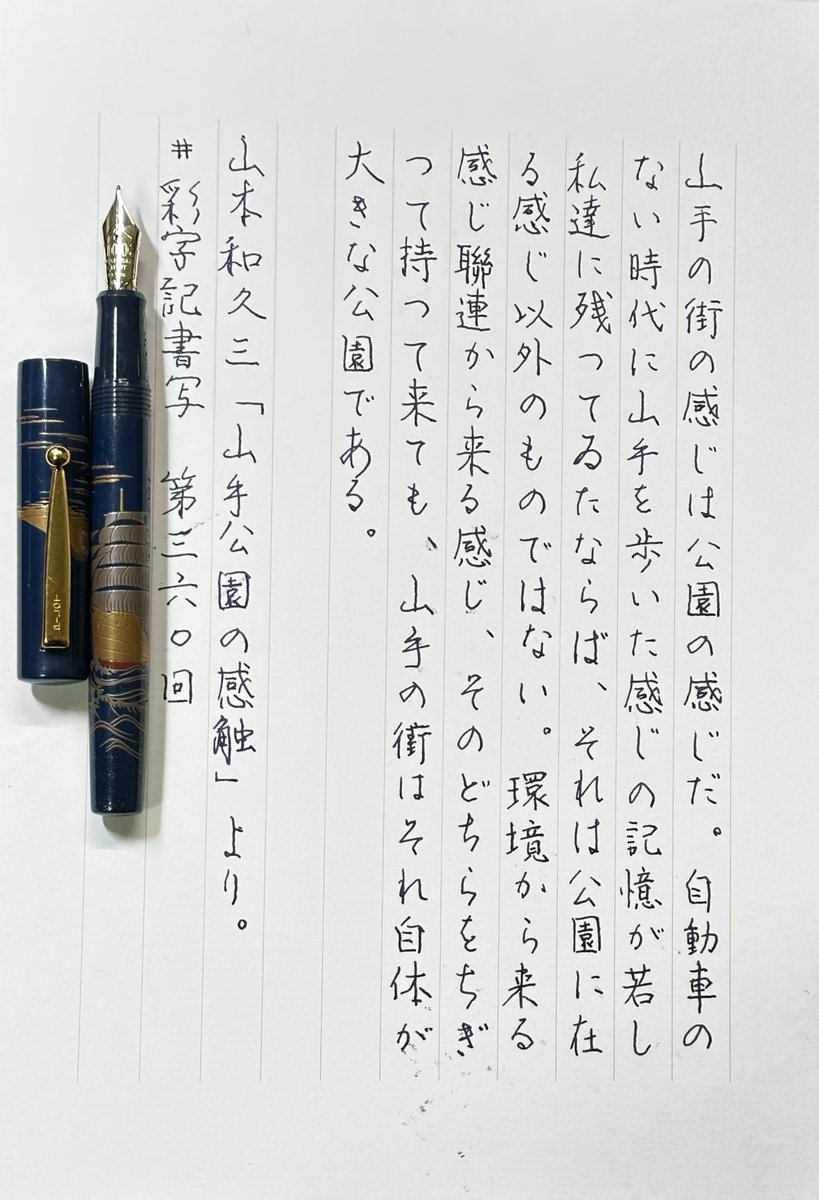 山手の街の感じは公園の感じだ。自動車の
ない時代に山手を歩いた感じの記憶が若し
私達に残つてゐたならば、それは公園に在
る感じ以外のものではない。環境から来る
感じ聯連から来る感じ、そのどちらをちぎ
つて持つて来ても、山手の街はそれ自体が
大きな公園である。
山本和久三「山手公園の感触」より。
#彩字記書写 第三六〇回
PILOT